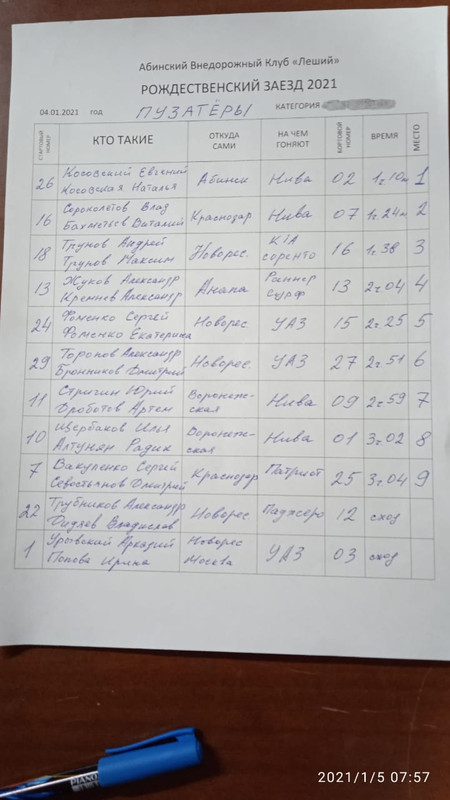 Абинский Внедорожный Клуб «Леший»
РОЖДЕСТВЕНСКИЙ ЗАЕЗД 2021
04.01.2021 год ПУЗАТЁРЫ КАТЕГОРИЯ
СТАРТОВЫЙ НОМЕР КТО ТАКИЕ ОТКУДА САМИ НА ЧЕМ ГОНЯЮТ БОРТОВОЙ НОМЕР ВРЕМЯ МЕСТО
26 Косовский Евгений Косовская Наталья Абинск Нива 02 1ч10м 1
16 Сороколетов Влад Бахметьев Виталий Краснодар Нива 07 1ч24м 2
18 Трунов Андрей Трунов Максим Новорес. KIA соренто 16 1ч38 3
13 Жуков Александр Кремнев Александр Анапа Раннер сурф 13 2ч04 4
24 Фоменко Сергей Фоменко Екатерина Новорес УАЗ 15 2ч25 5
29 Торопов Александр Бронников Дмитрий Новорес. УАЗ 27 2ч51 6
11 Стригин Юрий Дроботов Артем Воронеж- ская Нива 09 2ч59 7
10 Щербаков Илья Алтунян Радик Воронеж- ская Нива 01 3ч02 8
7 Вакуленко Сергей Севостьянов Дмитрий Краснодар Патриот 25 3ч04 9
22 Трубников Александр Владислав Новорес Паджеро 12 сход
1 Аркадий Попова Ирина Новорес Москва УАЗ 03 сход
PIANO
2021/1/5 07:57